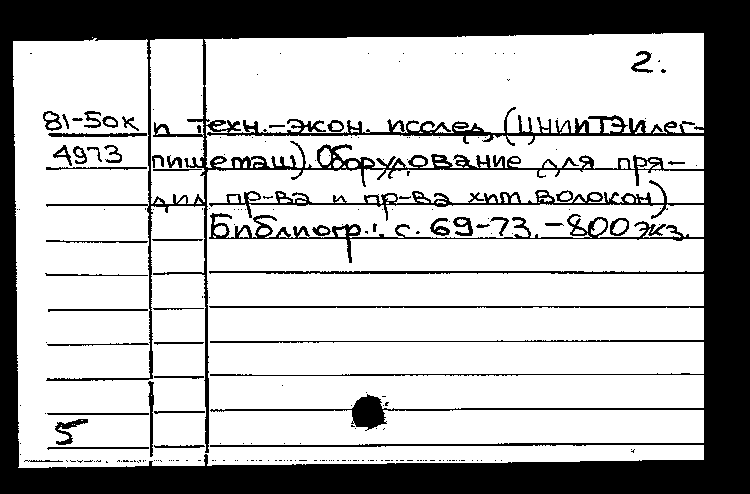 2.
81-5ок и Техн.-экон. исслед. (ЦНИИТЭИлег-
4973 пищемаш). Оборудование для пря-
дил. пр-ва и пр-ва хим. волокон).
Библиогр.: с. 69-73. - 800 экз.
5